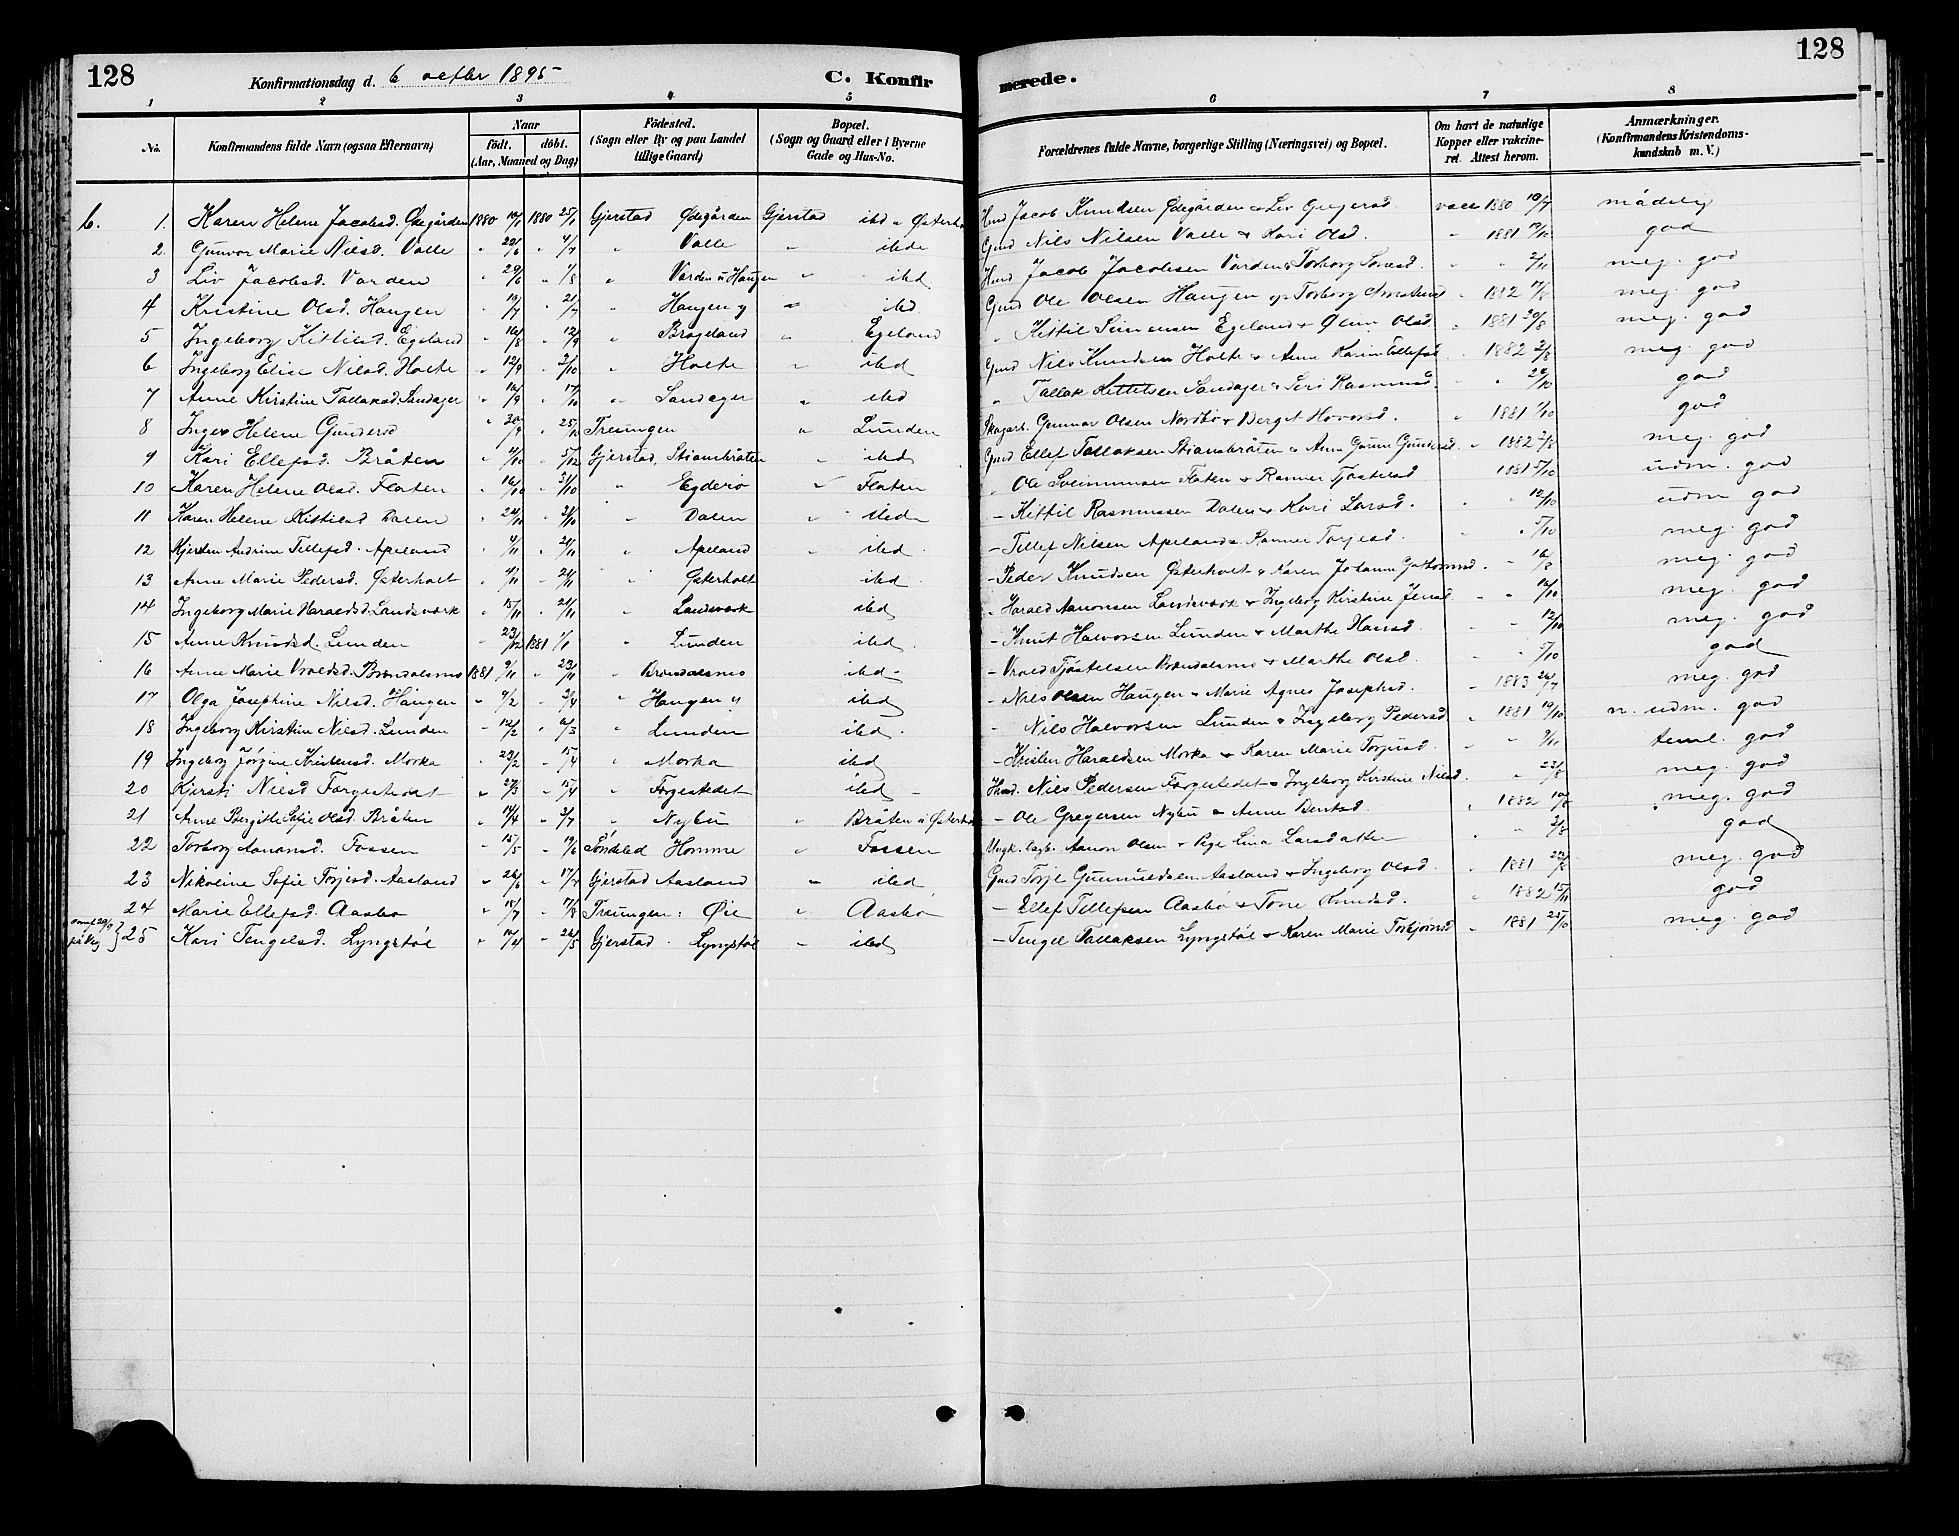 128
Konfirmationsdag d. 6 octbr 1895
C. Konfirmerede.
128
1 2 3 4 5 6 7 8
No.
Konfirmandens fulde Navn (ogsaa Efternavn)
Naar födt. döbt. (Aar, Maaned og Dag)
Födested. (Sogn eller By og paa Landet tillige Gaard)
Bopæl. (Sogn og Gaard eller i Byerne Gade og Hus-No.
Forældrenes fulde Navne, borgerlige Stilling (Næringsvei) og Bopæl.
Om havt de naturlige Kopper eller vakcineret. Attest herom.
Anmærkninger. (Konfirmandens Kristendomskundskab m. V.)
6. 1. Karen Helene Jacobsd. Ødegården 1880 1880 25/7 Gjerstad Ødegården Gjerstad ibd u Østerh Jacob Knudsen Ødegården Liv Gregersd vacc 1880 mådelig
2. Gunvor Marie Nilsd. Valle " 22/6 " 4/7 " Valle " ibd Gmd Nils Nilsen Valle & Kari Olsd. " 1881 god
3 Liv Jacobsd. Varden " 29/6 " 1/8 " Varden u Haugen " ibd Hmd Jacob Jacobsen Varden & Torborg " " 2/11 meg. god
4 Kristine Olsd. Haugen " 19/7 " 21/7 " Haugen y " ibd Gmd Ole Olsen Haugen y & Torborg " 1882 meg. god
5 Ingeborg Kittilsd. Egeland " 16/8 " 12/9 " Brøgeland " Egeland " Kittil Simonsen Egeland & Olsd " 1881 20/8 meg. god
6 Ingeborg Elise Nilsd. Holte " 12/9 " 3/10 " Holte " ibd Gmd Nils Knudsen Holte & Anne Karine Ellefsd. " 1882 2/8 meg. god
7 Anne Kirstine Tallaksd. Sandager " 16/9 " 17/10 " Sandager " ibd " Tallak Kittelsen Sandager & Siri Rasmusd. " " 24/10 god
8 Inger Helene Gundersd " 30/9 " 25/10 Tresungen " Lunden Gunnar Olsen Nordbø & Bergit Hovorsd. " 1881 god
9 Kari Ellefsd. Bråten " 4/10 " 5/12 Gjerstad, Stiansbråten " ibd Gmd Ellef Tallaksen Stiansbråten & Anne Gundersd. " 1882 meg. god
10 Karen Helene Olsd. Flaten " 16/10 " 31/10 " Egdero " Flaten " Ole Flaten & " 1881 5/10 udm. god
11 Karen Helene Kittilsd Dalen " " " Dalen " ibd - Kittil Rasmussen Dalen & Kari Larsd. " " 12/10 udm god
12 Kjersten Andrine Tellefsd. Apeland " 4/11 " 21/11 " Apeland " ibd - Tellef Nelsen Apeland & Torjesd. " " 5/10 meg. god
13 Anne Marie Pedersd. Østerholt " 4/11 " 21/11 " Østerholt " ibd - Peder Knudsen Østerholt & Karen Johanne " " 16/8 meg. god
14 Ingeborg Marie Haraldsd. Landsværk " 15/11 " 21/11 " Landsværk ibd " Harald Aanonsen Landsværk & Ingeborg Kirstine " " meg. god
15 Anne Knudsd. Lunden " 23/12 1881 1/1 " Lunden ibd - Knut Halvorsen Lunden & Marthe Hansd. " " 12/10 meg. god
16 Anne Marie Vraldsd. Brøndalsmo 1881 " 23/11 " Brøndalsmo ibd - Vrald Tjøstelsen Brøndalsmo & Marthe Olsd. " " 5/10 god
17 Olga Josephine Nilsd. Haugen " 9/2 " 3/4 " Haugen y ibd - Nils Olsen Haugen & Marie Agnes Josephsd. " 1883 26/7 meg. god
18 Ingeborg Kirstine Nilsd. Lunden " 12/2 " 6/3 " Lunden ibd. - Nils Halvorsen Lunden & Ingeborg Pedersd " 1881 19/10 n. udm. god
19 Ingeborg Jørgine Kristensd. Morka " 23/2 " 15/4 " Morka ibd - Kristen Haraldsen Morka & Karen Marie Torjusd. " " 9/11 teml. god
20 Kjersti Nielsd Færgestedet " 27/3 " 15/4 " Førgestedet " ibd Hmd. Nils Pedersen Færgestedet & Ingeborg Kirstine Nielsd. " 23/8 meg. god
21 Anne Bergitte Sofie Olsd. Bråten " 14/4 " 3/7 " Nybu " Bråten u Østerh - Ole Gregersen Nybu & Anne Berntsd. " 1882 meg. god
22 Torborg Aanonsd. Fossen " 15/5 " 19/6 Søndeled Homme " Fossen Ungk. Aanon Olsen & Pige Lina Larsdatter " " 3/8 god
23 Nikoline Sofie Torjesd. Aasland " 26/6 " 17/7 Gjerstad Aasland " ibd Gmd Torje Gunnuldsen Aasland & Ingeborg Olsd. " 1881 meg. god
24 Marie Ellefsd. Aasbø " 18/7 " 17/8 Tresungen: Øie " Aasbø - Ellef Tellefsen Aasbø & Tone Knudsd. " 1882 15/11 god
25 Kari Tengelsd. Lyngstøl " 14/4 " 26/5 Gjerstad. Lyngstøl " ibd - Tengel Tallaksen Lyngstøl & Karen Marie Torbjørnsd " 1881 25/10 meg. god